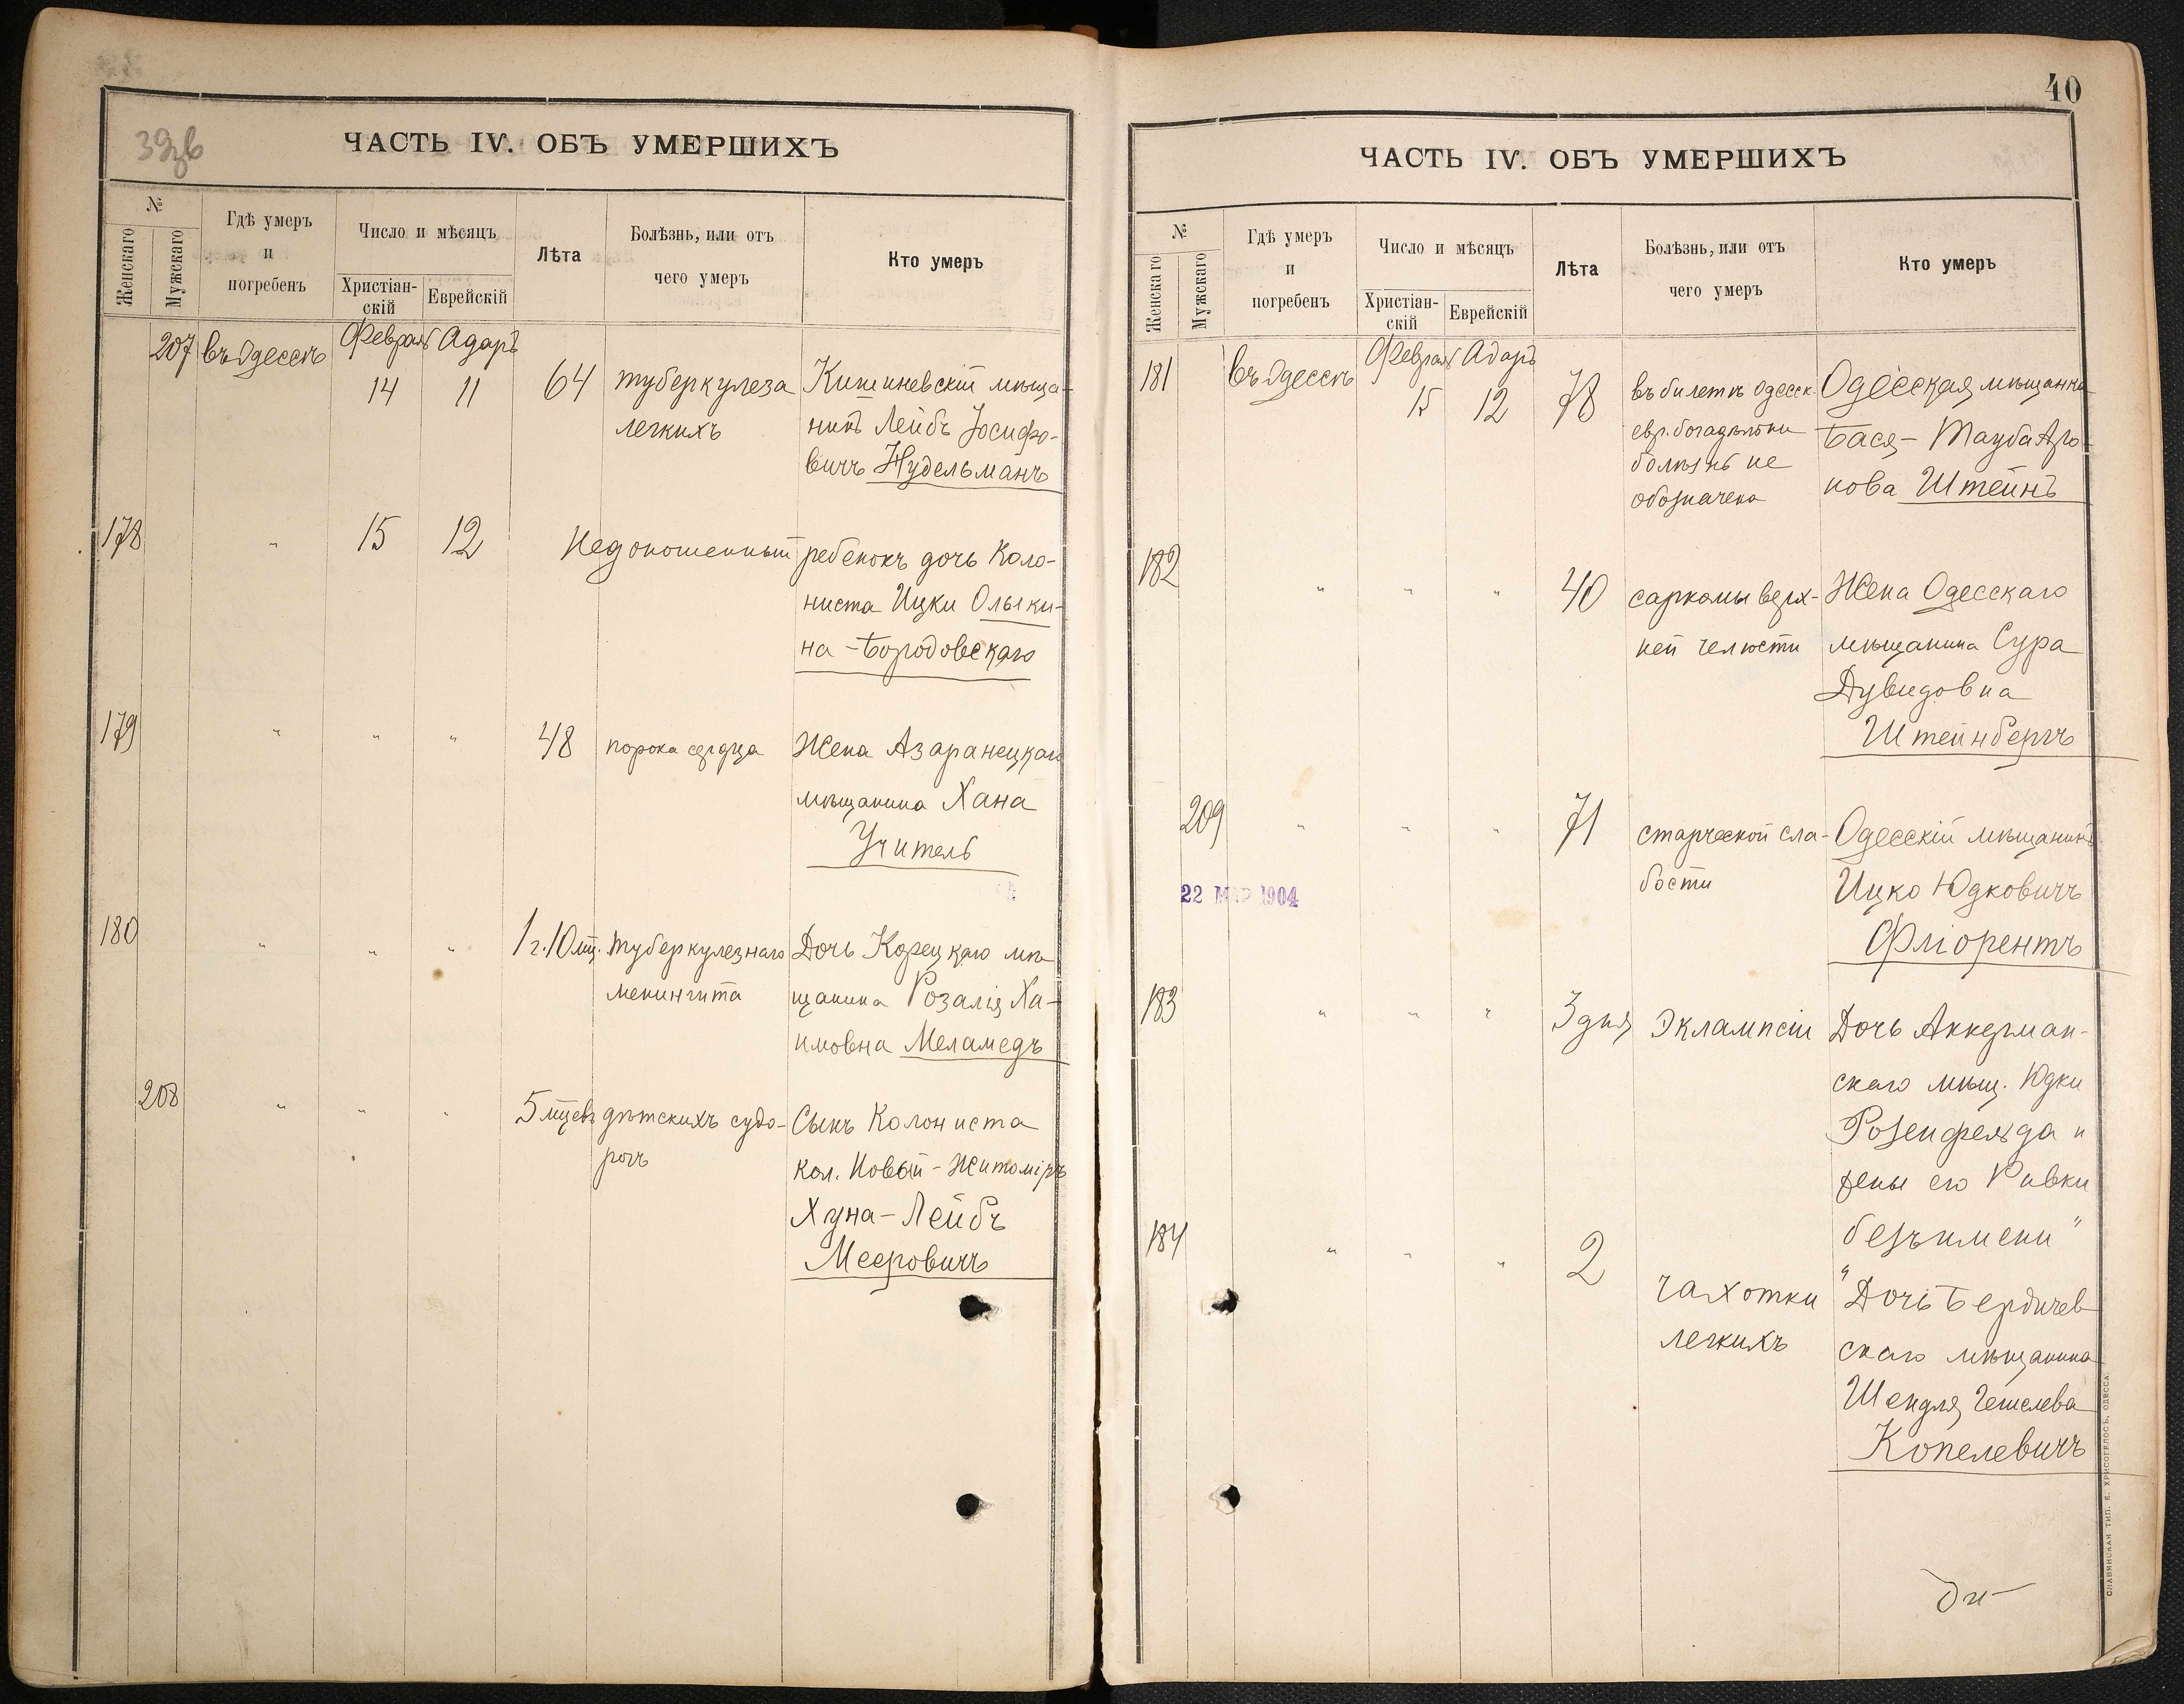 39зв
ЧАСТЬ IV. ОБЪ УМЕРШИХЪ
№
Женскаго
Мужскаго
Гдѣ умеръ
и
погребенъ
Число и мѣсяцъ
Христіан-
скій
Еврейскій
Лѣта
Болѣзнь, или отъ
чего умеръ
Кто умеръ
207 въ Одессѣ Февраля Адаръ
14 11 64 туберкулеза Кишиневскій мѣща-
легкихъ нинъ Лейбъ Іосифо-
вичъ Нудельманъ
178 " 15 12 Недоношенный ребенокъ дочь Коло-
ниста Ицки Ольки-
на-Бородовскаго
179 " " " 48 порока сердца Жена Азаранецкаго
мѣщанина Хана
Учитель
180 " " " 1 г. 10 мц. туберкулезнаго Дочь Корецкаго мѣ
менингита щанина Розалія Ха-
имовна Меламедъ
208 " " " 5 мцевъ дѣтскихъ судо- Сынъ Колониста
рогъ кол. Новый-Житоміръ
Хуна-Лейбъ
Мееровичъ
40
ЧАСТЬ IV. ОБЪ УМЕРШИХЪ
№
Женскаго
Мужскаго
Гдѣ умеръ
и
погребенъ
Число и мѣсяцъ
Христіан-
скій
Еврейскій
Лѣта
Болѣзнь, или отъ
чего умеръ
Кто умеръ
181 въ Одессѣ Февраля Адаръ
15 12 78 въ билетѣ Одесск. Одесская мѣщанка
евр. богадѣльни Бася-Тауба Аро-
болѣзнь не нова Штейнъ
обозначена
182 " " " 40 саркомы верх- Жена Одесскаго
ней челюсти мѣщанина Сура
Дувидовна
Штейнбергъ
209 " " " 71 старческой сла- Одесскій мѣщанинъ
бости Ицко Юдковичъ
Фліорентъ
22 МАР 1904
183 " " " 3 дня Эклампсіи Дочь Аккерман-
скаго мѣщ. Юдки
Розенфельда и
жены его Ривки
безъ имени"
184 " " " 2 чахотки "Дочь Бердичев
легкихъ скаго мѣщанина
Шендля Гешелева
Копелевичъ
СЛАВЯНСКАЯ ТИП. Е. ХРИСОГЕЛОСЪ, ОДЕССА.